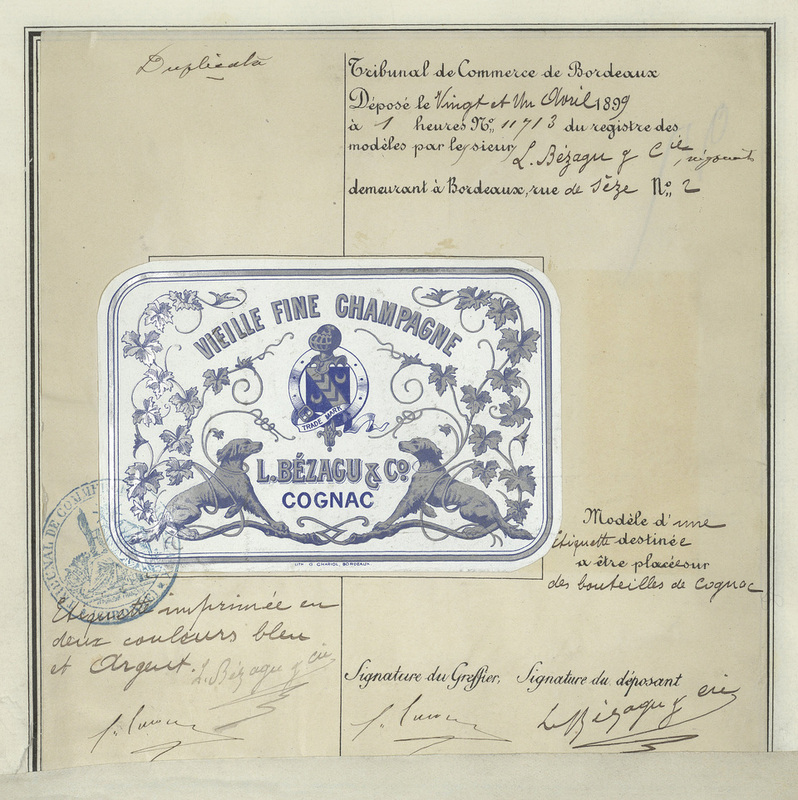 Duplicata
Tribunal de Commerce de Bordeaux
Déposé le Vingt et Un Avril 1899
à 1 heures No. 11713 du registre des
modèles par le sieur L. Bézagu & Cie, négociants
demeurant à Bordeaux, rue de Sèze No. 2
VIEILLE FINE CHAMPAGNE
TRADE MARK
L. BÉZAGU & Co
COGNAC
LITH. G. CHARIOL, BORDEAUX
TRIBUNAL DE COMMERCE
Modèle d'une
étiquette destinée
a être placée sur
des bouteilles de Cognac
Etiquette imprimée en
deux couleurs bleu
et Argent. L. Bézagu & Cie
Signature du Greffier,
Signature du déposant
L. Bézagu & Cie